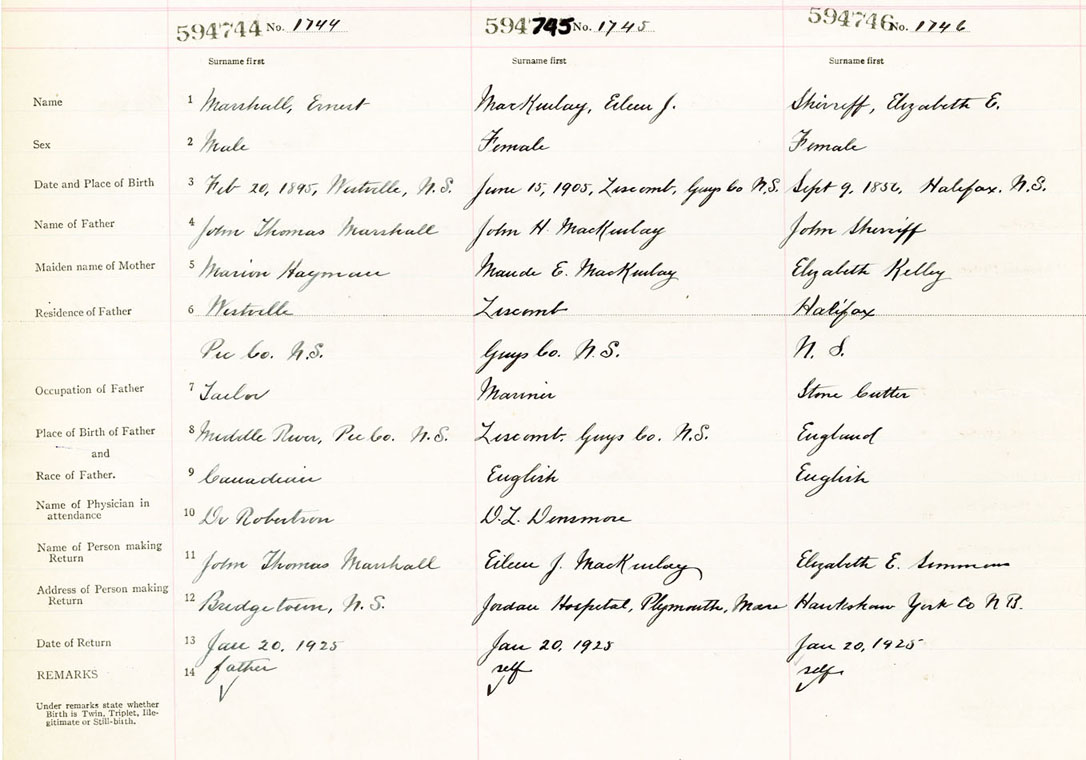 594744 No. 1744 594745 No. 1745 594746 No. 1746
Surname first Surname first Surname first
Name 1 Marshall, Ernest MacKinlay, Eileen J. Shirreff, Elizabeth E.
Sex 2 Male Female Female
Date and Place of Birth 3 Feb 20, 1895, Westville, N.S. June 15, 1905, Liscomb, Guys Co N.S. Sept 9, 1856, Halifax, N.S.
Name of Father 4 John Thomas Marshall John H. MacKinlay John Shirreff
Maiden name of Mother 5 Marion Hayman Maude E. MacKinlay Elizabeth Kelley
Residence of Father 6 Westville Liscomb Halifax
Pic Co. N.S. Guys Co. N.S. N. S.
Occupation of Father 7 Tailor Mariner Stone Cutter
Place of Birth of Father 8 Middle River, Pic Co. N.S. Liscomb, Guys Co. N.S. England
and
Race of Father. 9 Canadian English English
Name of Physician in
attendance 10 Dr Robertson D.L. Densmore
Name of Person making
Return 11 John Thomas Marshall Eileen J. MacKinlay Elizabeth E. Simmons
Address of Person making
Return 12 Bridgetown, N.S. Jordan Hospital, Plymouth, Mass Hawkshaw York Co N.B.
Date of Return 13 Jan 20, 1925 Jan 20, 1925 Jan 20, 1925
REMARKS 14 father self self
Under remarks state whether
Birth is Twin, Triplet, Ille-
gitimate or Still-birth.